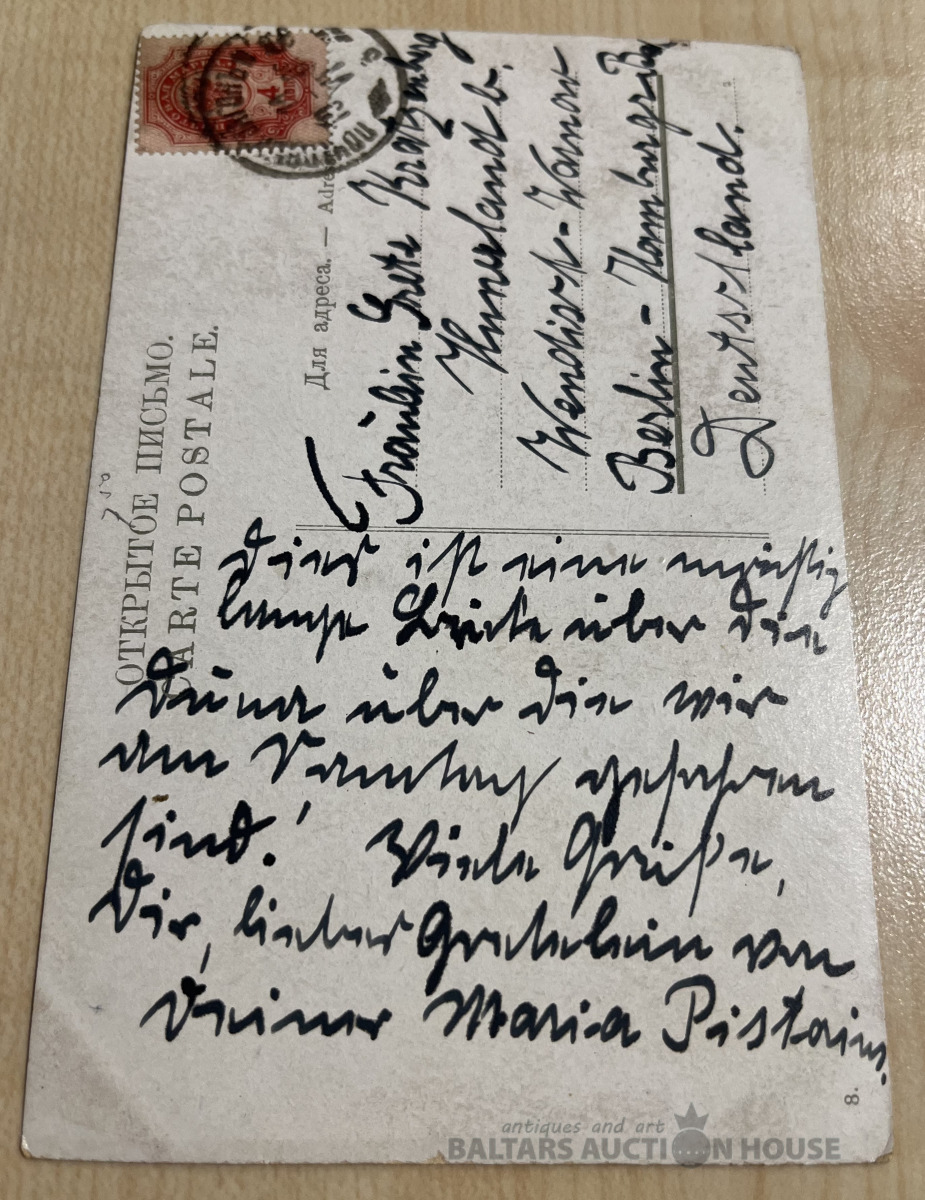 ОТКРЫТОЕ ПИСЬМО.
CARTE POSTALE.
Для адреса. — Adre
4
Fräulein Grete
Wendisch-Warnow
Berlin-Hamburger
Deutschland.
Dies ist eine mächtig
lange Brücke über die
Düna über die wir
am Sonntag gefahren
sind! Viele Grüße,
Dir, liebes Gretelein von
Deiner Maria
8.
antiques and art
BALTARS AUCTION HOUSE